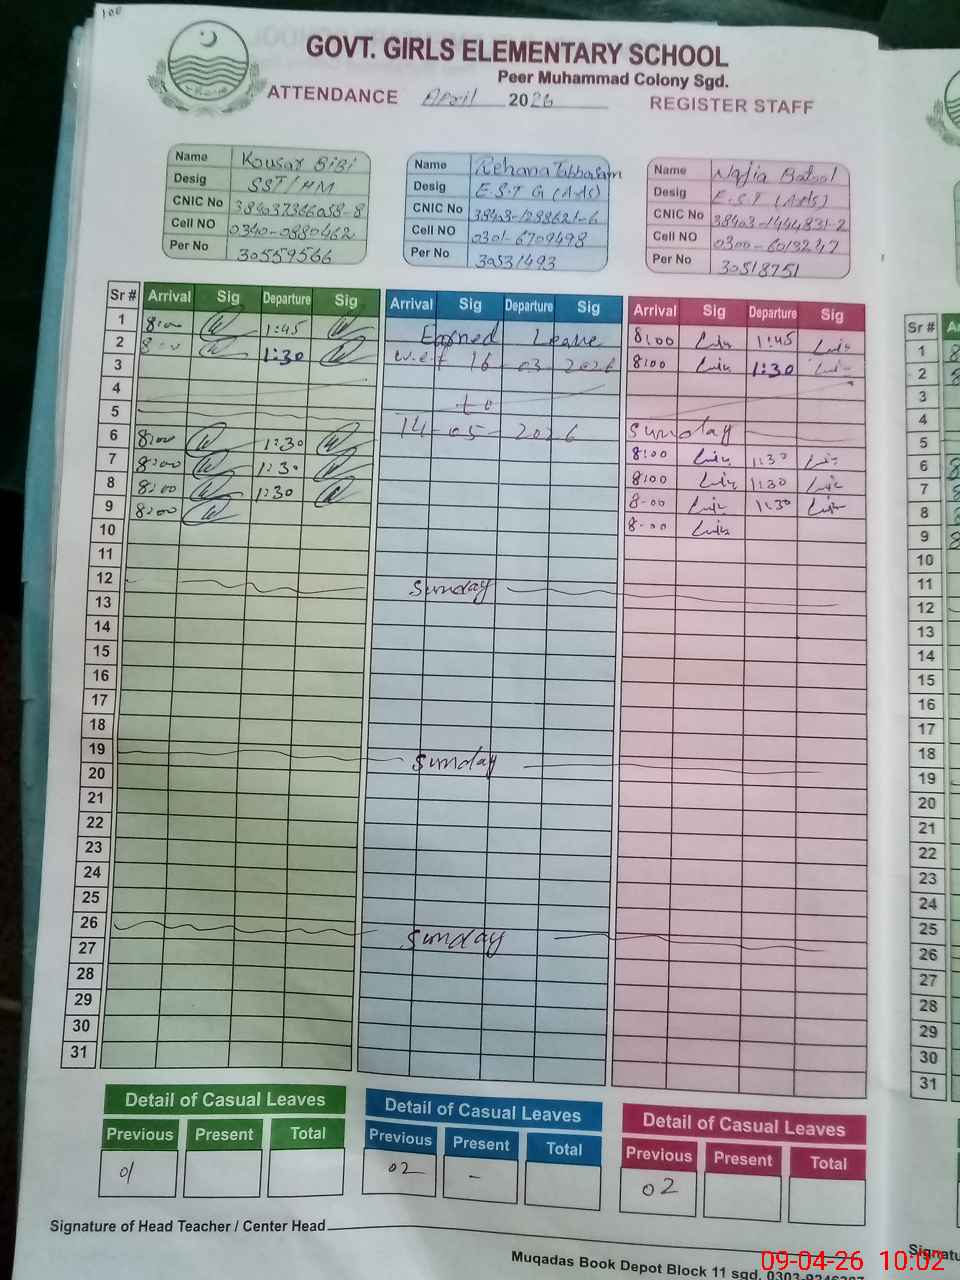 100
GOVT. GIRLS ELEMENTARY SCHOOL
Peer Muhammad Colony Sgd.
ATTENDANCE April 2026 REGISTER STAFF
Name Kousar BiBi
Desig SST/HM
CNIC No 384037366058-8
Cell NO 0340-0880462
Per No 30559566
Name Rehana Tabbasam
Desig E.S.T G (Arts)
CNIC No 38403-1288621-6
Cell NO 0301-6709498
Per No 30531493
Name Najia Batool
Desig E.S.T (Arts)
CNIC No 38403-1444831-2
Cell NO 0300-6013247
Per No 30518751
Sr # Arrival Sig Departure Sig Arrival Sig Departure Sig Arrival Sig Departure Sig
1 8:00 1:45 Earned Leave 8:00 1:45
2 8:00 1:30 w.e.f 16-03-2026 8:00 1:30
3
4 to
5 14-05-2026 Sunday
6 8:00 1:30 8:00 1:30
7 8:00 1:30 8:00 1:30
8 8:00 1:30 8-00 1:30
9 8:00 8-00
10
11
12 Sunday
13
14
15
16
17
18
19 Sunday
20
21
22
23
24
25
26 Sunday
27
28
29
30
31
Detail of Casual Leaves Detail of Casual Leaves Detail of Casual Leaves
Previous Present Total Previous Present Total Previous Present Total
01 02 - 02
Signature of Head Teacher / Center Head
Muqadas Book Depot Block 11 sgd.
Sr #
1
2
3
4
5
6
7
8
9
10
11
12
13
14
15
16
17
18
19
20
21
22
23
24
25
26
27
28
29
30
31
09-04-26 10:02